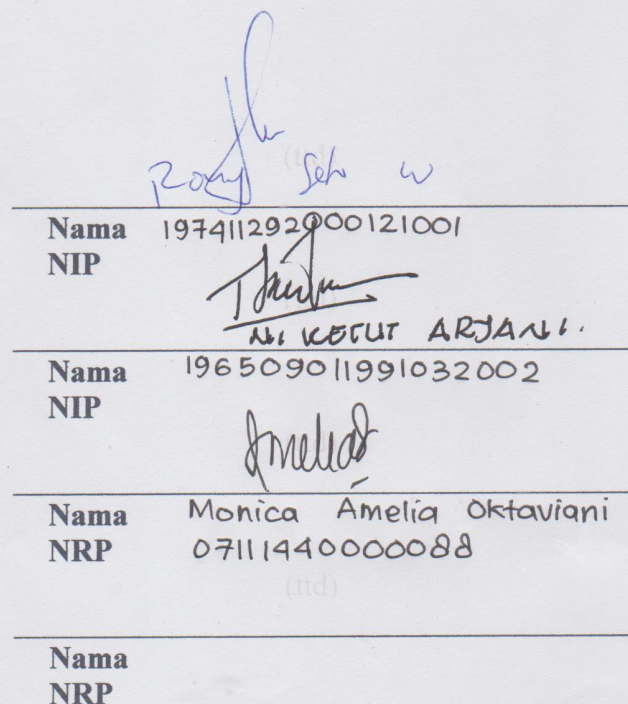 (ttd)
Rony Seto W
Nama 197411292000121001
NIP
NI KETUT ARJANI.
Nama 196509011991032002
NIP
Amelia
Nama Monica Amelia Oktaviani
NRP 07111440000088
(ttd)
Nama
NRP